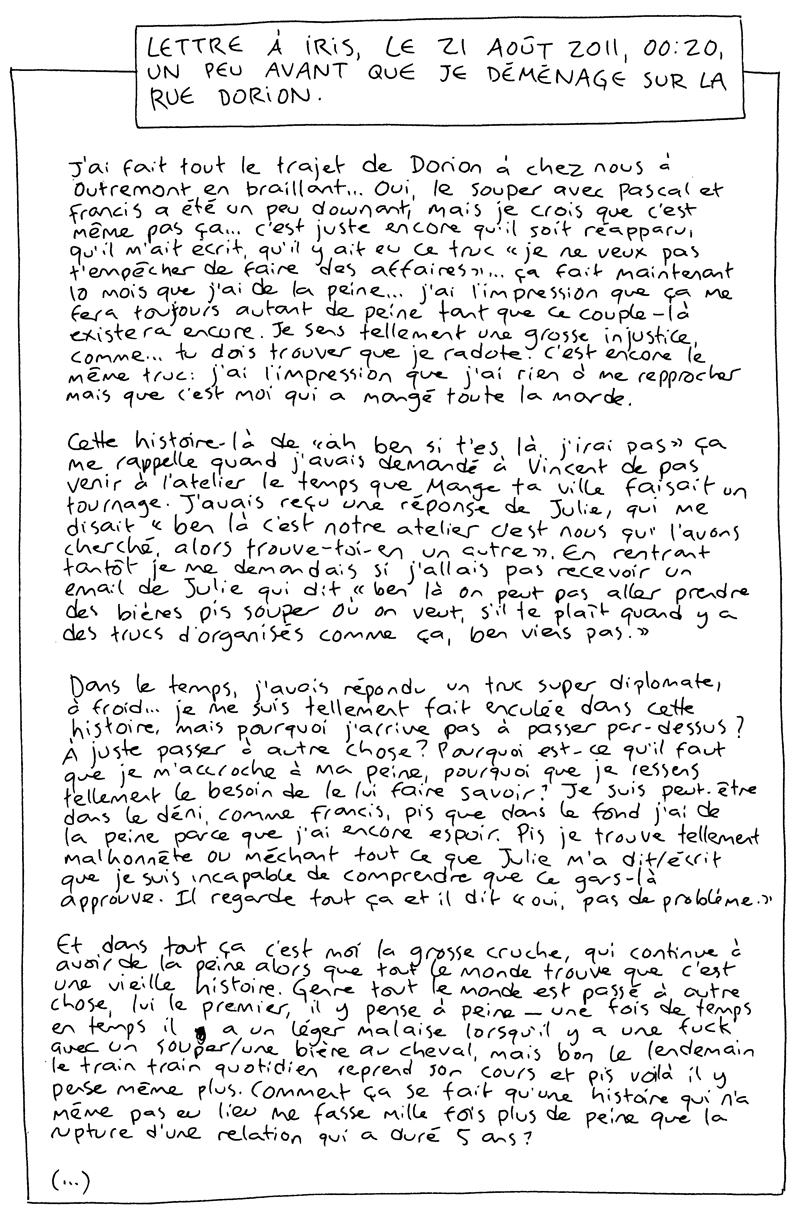 LETTRE À IRIS, LE 21 AOÛT 2011, 00:20,
UN PEU AVANT QUE JE DÉMÉNAGE SUR LA
RUE DORION.
J'ai fait tout le trajet de Dorion à chez nous à
Outremont en braillant... Oui, le souper avec Pascal et
Francis a été un peu downant, mais je crois que c'est
même pas ça... c'est juste encore qu'il soit réapparu,
qu'il m'ait écrit, qu'il y ait eu ce truc « je ne veux pas
t'empêcher de faire des affaires »... ça fait maintenant
10 mois que j'ai de la peine... j'ai l'impression que ça me
fera toujours autant de peine tant que ce couple-là
existera encore. Je sens tellement une grosse injustice,
comme... tu dois trouver que je radote. C'est encore le
même truc: j'ai l'impression que j'ai rien à me repprocher
mais que c'est moi qui a mangé toute la marde.
Cette histoire-là de « ah ben si t'es là, j'irai pas » ça
me rappelle quand j'avais demandé à Vincent de pas
venir à l'atelier le temps que Mange ta ville faisait un
tournage. J'avais reçu une réponse de Julie, qui me
disait « ben là c'est notre atelier c'est nous qui l'avons
cherché, alors trouve-toi-en un autre ». En rentrant
tantôt je me demandais si j'allais pas recevoir un
email de Julie qui dit « ben là on peut pas aller prendre
des bières pis souper où on veut, s'il te plaît quand y a
des trucs d'organisés comme ça, ben viens pas. »
Dans le temps, j'avais répondu un truc super diplomate,
à froid... je me suis tellement fait enculée dans cette
histoire, mais pourquoi j'arrive pas à passer par-dessus ?
À juste passer à autre chose ? Pourquoi est-ce qu'il faut
que je m'accroche à ma peine, pourquoi que je ressens
tellement le besoin de le lui faire savoir ? Je suis peut-être
dans le déni, comme Francis, pis que dans le fond j'ai de
la peine parce que j'ai encore espoir. Pis je trouve tellement
malhonnête ou méchant tout ce que Julie m'a dit/écrit
que je suis incapable de comprendre que ce gars-là
approuve. Il regarde tout ça et il dit « oui, pas de problème. »
Et dans tout ça c'est moi la grosse cruche, qui continue à
avoir de la peine alors que tout le monde trouve que c'est
une vieille histoire. Genre tout le monde est passé à autre
chose, lui le premier, il y pense à peine – une fois de temps
en temps il a un léger malaise lorsqu'il y a une fuck
avec un souper/une bière au cheval, mais bon le lendemain
le train train quotidien reprend son cours et pis voilà il y
pense même plus. Comment ça se fait qu'une histoire qui n'a
même pas eu lieu me fasse mille fois plus de peine que la
rupture d'une relation qui a duré 5 ans ?
(...)